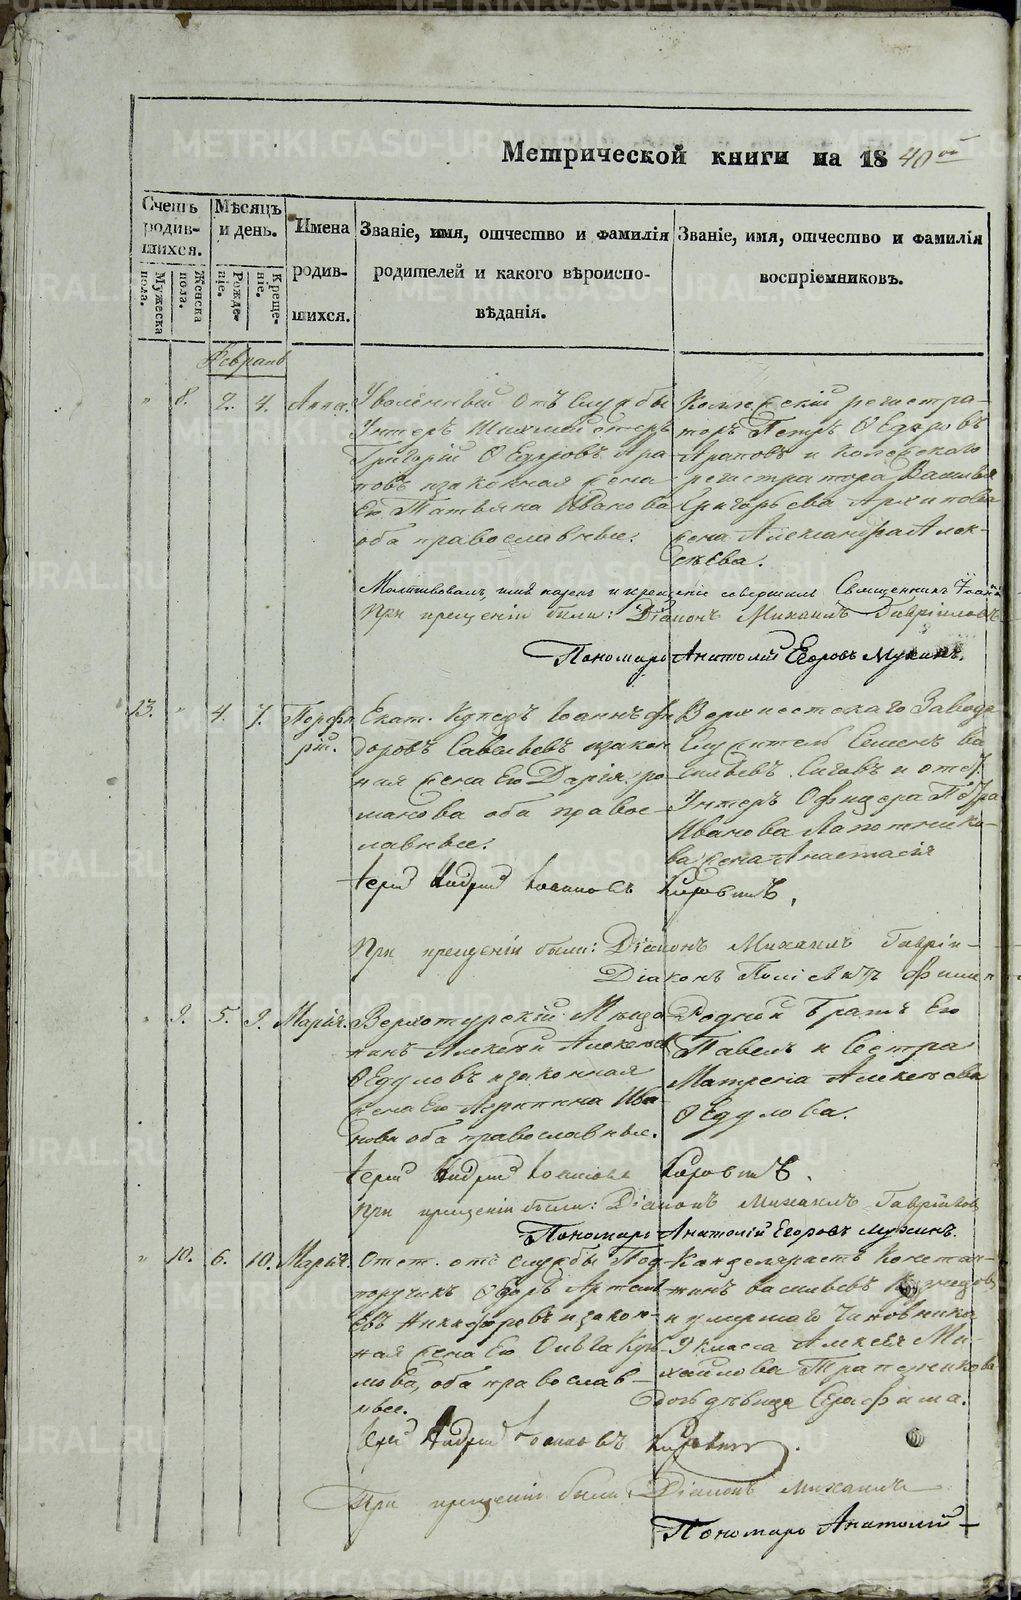 Метрической книги на 1840ой
Счетъ родив-шихся.
Мѣсяцъ и день.
Имена родив-шихся.
Званіе, имя, отчество и фамилія родителей и какого вѣроиспо-вѣданія.
Званіе, имя, отчество и фамилія воспріемниковъ.
Мужеска пола.
Женска пола.
Рожде-ніе.
Креще-ніе.
Февраль
" 8. 2. 4. Анна.
Уволенный отъ службы
Унтеръ Шихтмейстеръ
Григорій Ѳедоровъ Ара
повъ и законная жена
Его Татьяна Иванова
оба православные.
Колежскій регистра-
торъ Петръ Ѳедоровъ
Араповъ и Колежскаго
регистратора Василья
Григорьева Архипова
жена Александра Алек-
сѣева.
Молитвовалъ, имя нарекъ и крещеніе совершилъ Священникъ Іоаннъ
При крещеніи были: Діаконъ Михаилъ Гавріиловъ
Пономарь Анатолій Егоровъ Мухинъ.
13. " 4. 7. Порфи
рій.
Екат. Купецъ Іоаннъ Ѳе
доровъ Савельевъ и закон
ная жена Его Дарія Ро
манова оба правос-
лавные.
Верхнейтскаго Завода
Служитель Семенъ Ва
сильевъ и отст.
Унтеръ Офицера Петра
Иванова Лапотнико-
ва жена Анастасія
Іерей Андрей Іоанновъ Кировскій.
При крещеніи были: Діаконъ Михаилъ Гавріи-
Діаконъ
" 9. 5. 9. Марія.
Верхотурскій Мѣща
нинъ Алексѣй Алексѣев
Ѳедуловъ и законная
жена Его Агрипина Ива-
нова оба православные.
Родной братъ Его
Павелъ и Сестра
Матрена Алексѣева
Ѳедулова.
Іерей Андрей Іоанновъ
При крещеніи были: Діаконъ Михаилъ Гавріилов
Пономарь Анатолій Егоровъ Мухинъ.
" 10. 6. 10. Марія.
Отст. отъ службы Под
поручикъ Ѳедоръ Артемь
евъ Никифоровъ и закон-
ная жена Его Ольга Кузь
мова, оба православ-
ные.
Канцеляристъ Констан-
тинъ Васильевъ Кузнецовъ
и умершаго Чиновника
9 класса Алексѣя Ми-
хайлова Трапезникова
дочь дѣвица Серафима.
Іерей Андрей Іоанновъ
При крещеніи были Діаконъ Михаилъ
Пономарь Анатолій
METRIKI.GASO-URAL.RU